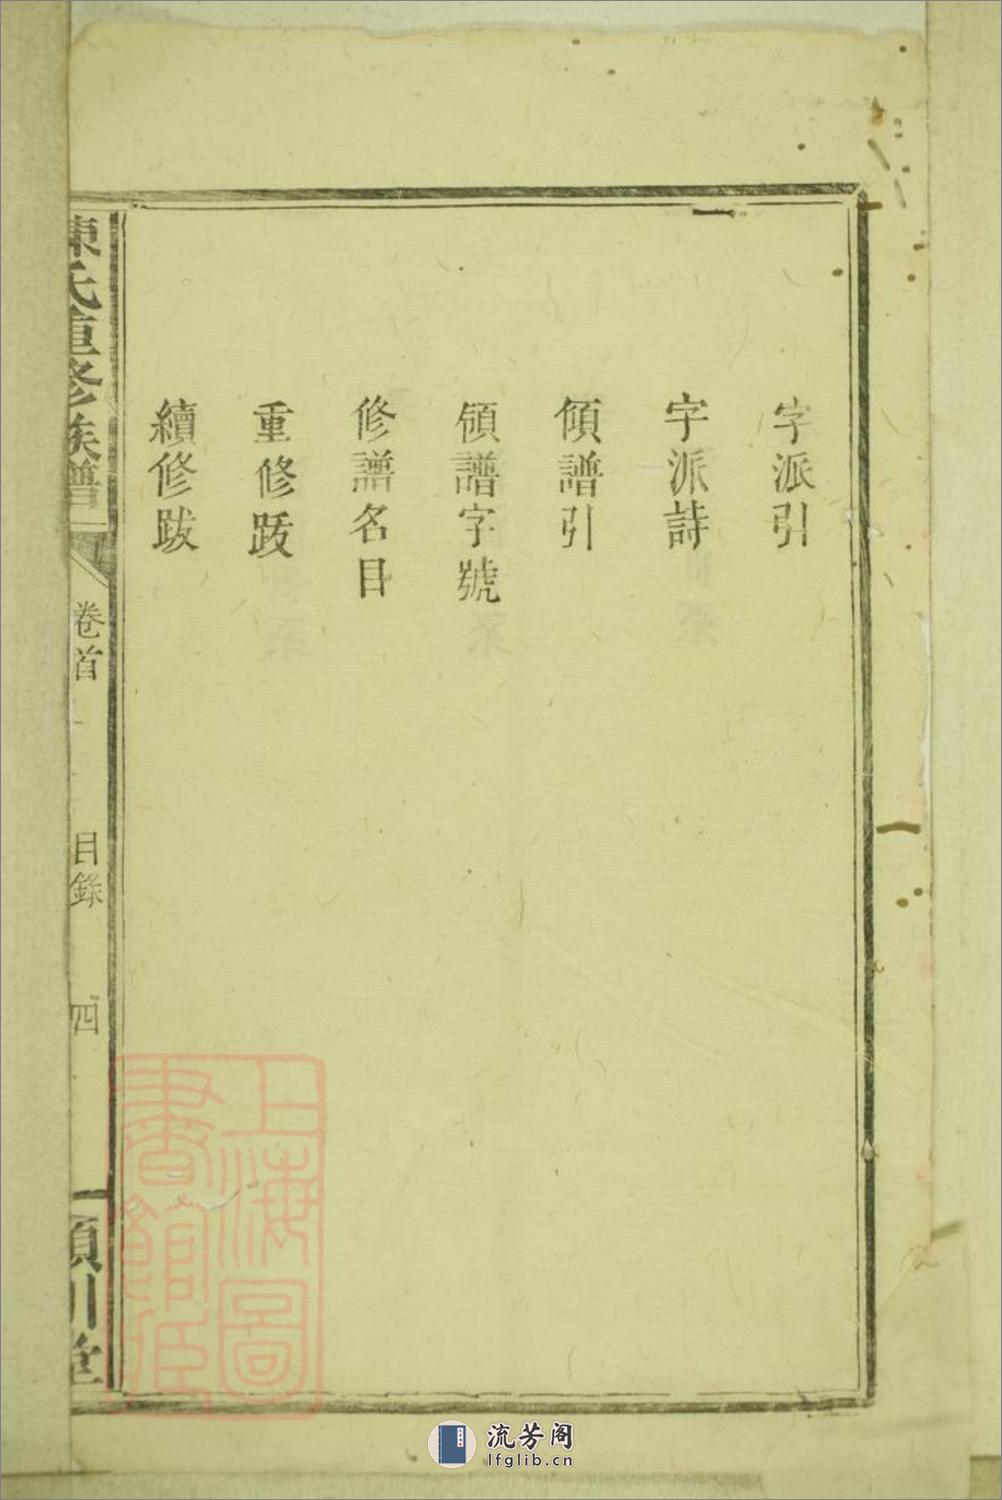 字派引
字派詩
領譜引
領譜字號
修譜名目
重修跋
續修跋
陳氏重修族譜
卷首
目錄
四
潁川堂
上海圖
書館藏
流芳阁
lfglib.cn